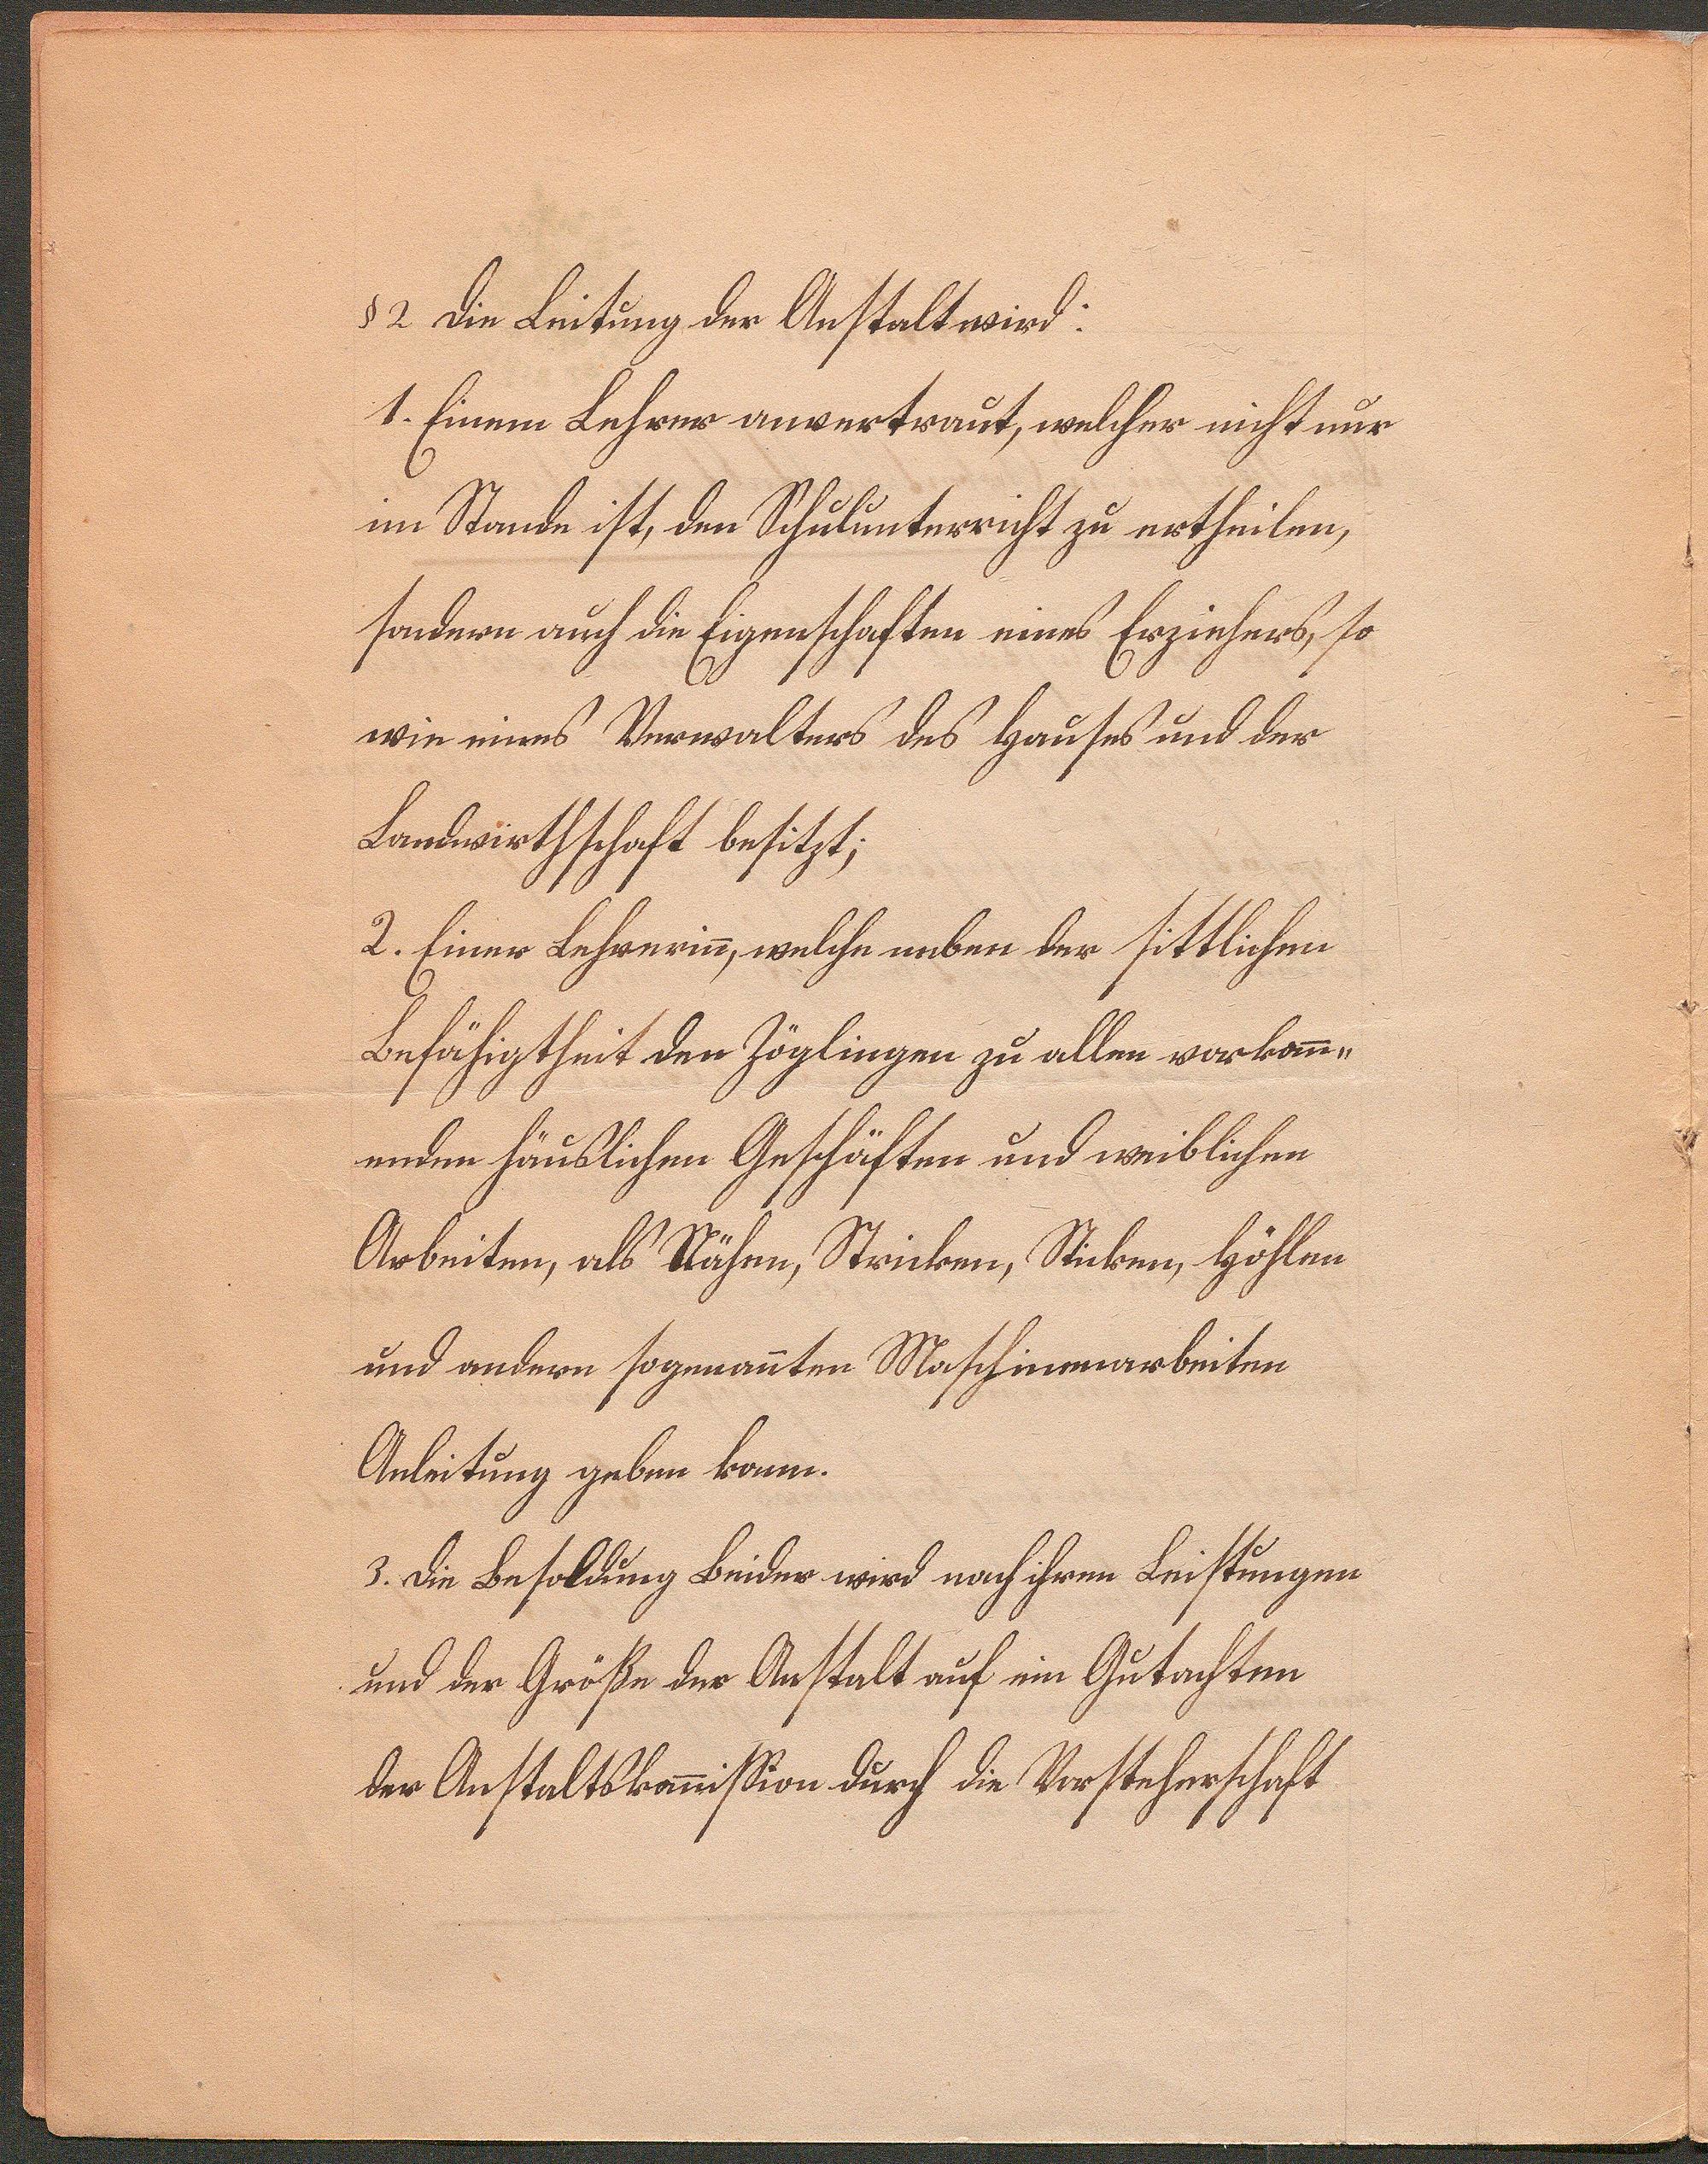 § 2 Die Leitung der Anstalt wird:
1. Einem Lehrer anvertraut, welcher nicht nur
im Stande ist, den Schulunterricht zu ertheilen,
sondern auch die Eigenschaften eines Erziehers, so
wie eines Verwalters des Hauses und der
Landwirthschaft besitzt;
2. Einer Lehrerin̄, welche neben der sittlichen
Befähigtheit den Zöglingen zu allen vorkom̄„
enden häuslichen Geschäften und weiblichen
Arbeiten, als Nähen, Stricken, Sticken, Höhlen
und andern sogenan̄ten Maschinenarbeiten
Anleitung geben kann.
3. Die Besoldung Beider wird nach ihren Leistungen
und der Größe der Anstalt auf ein Gutachten
der Anstaltskom̄ission durch die Vorsteherschaft